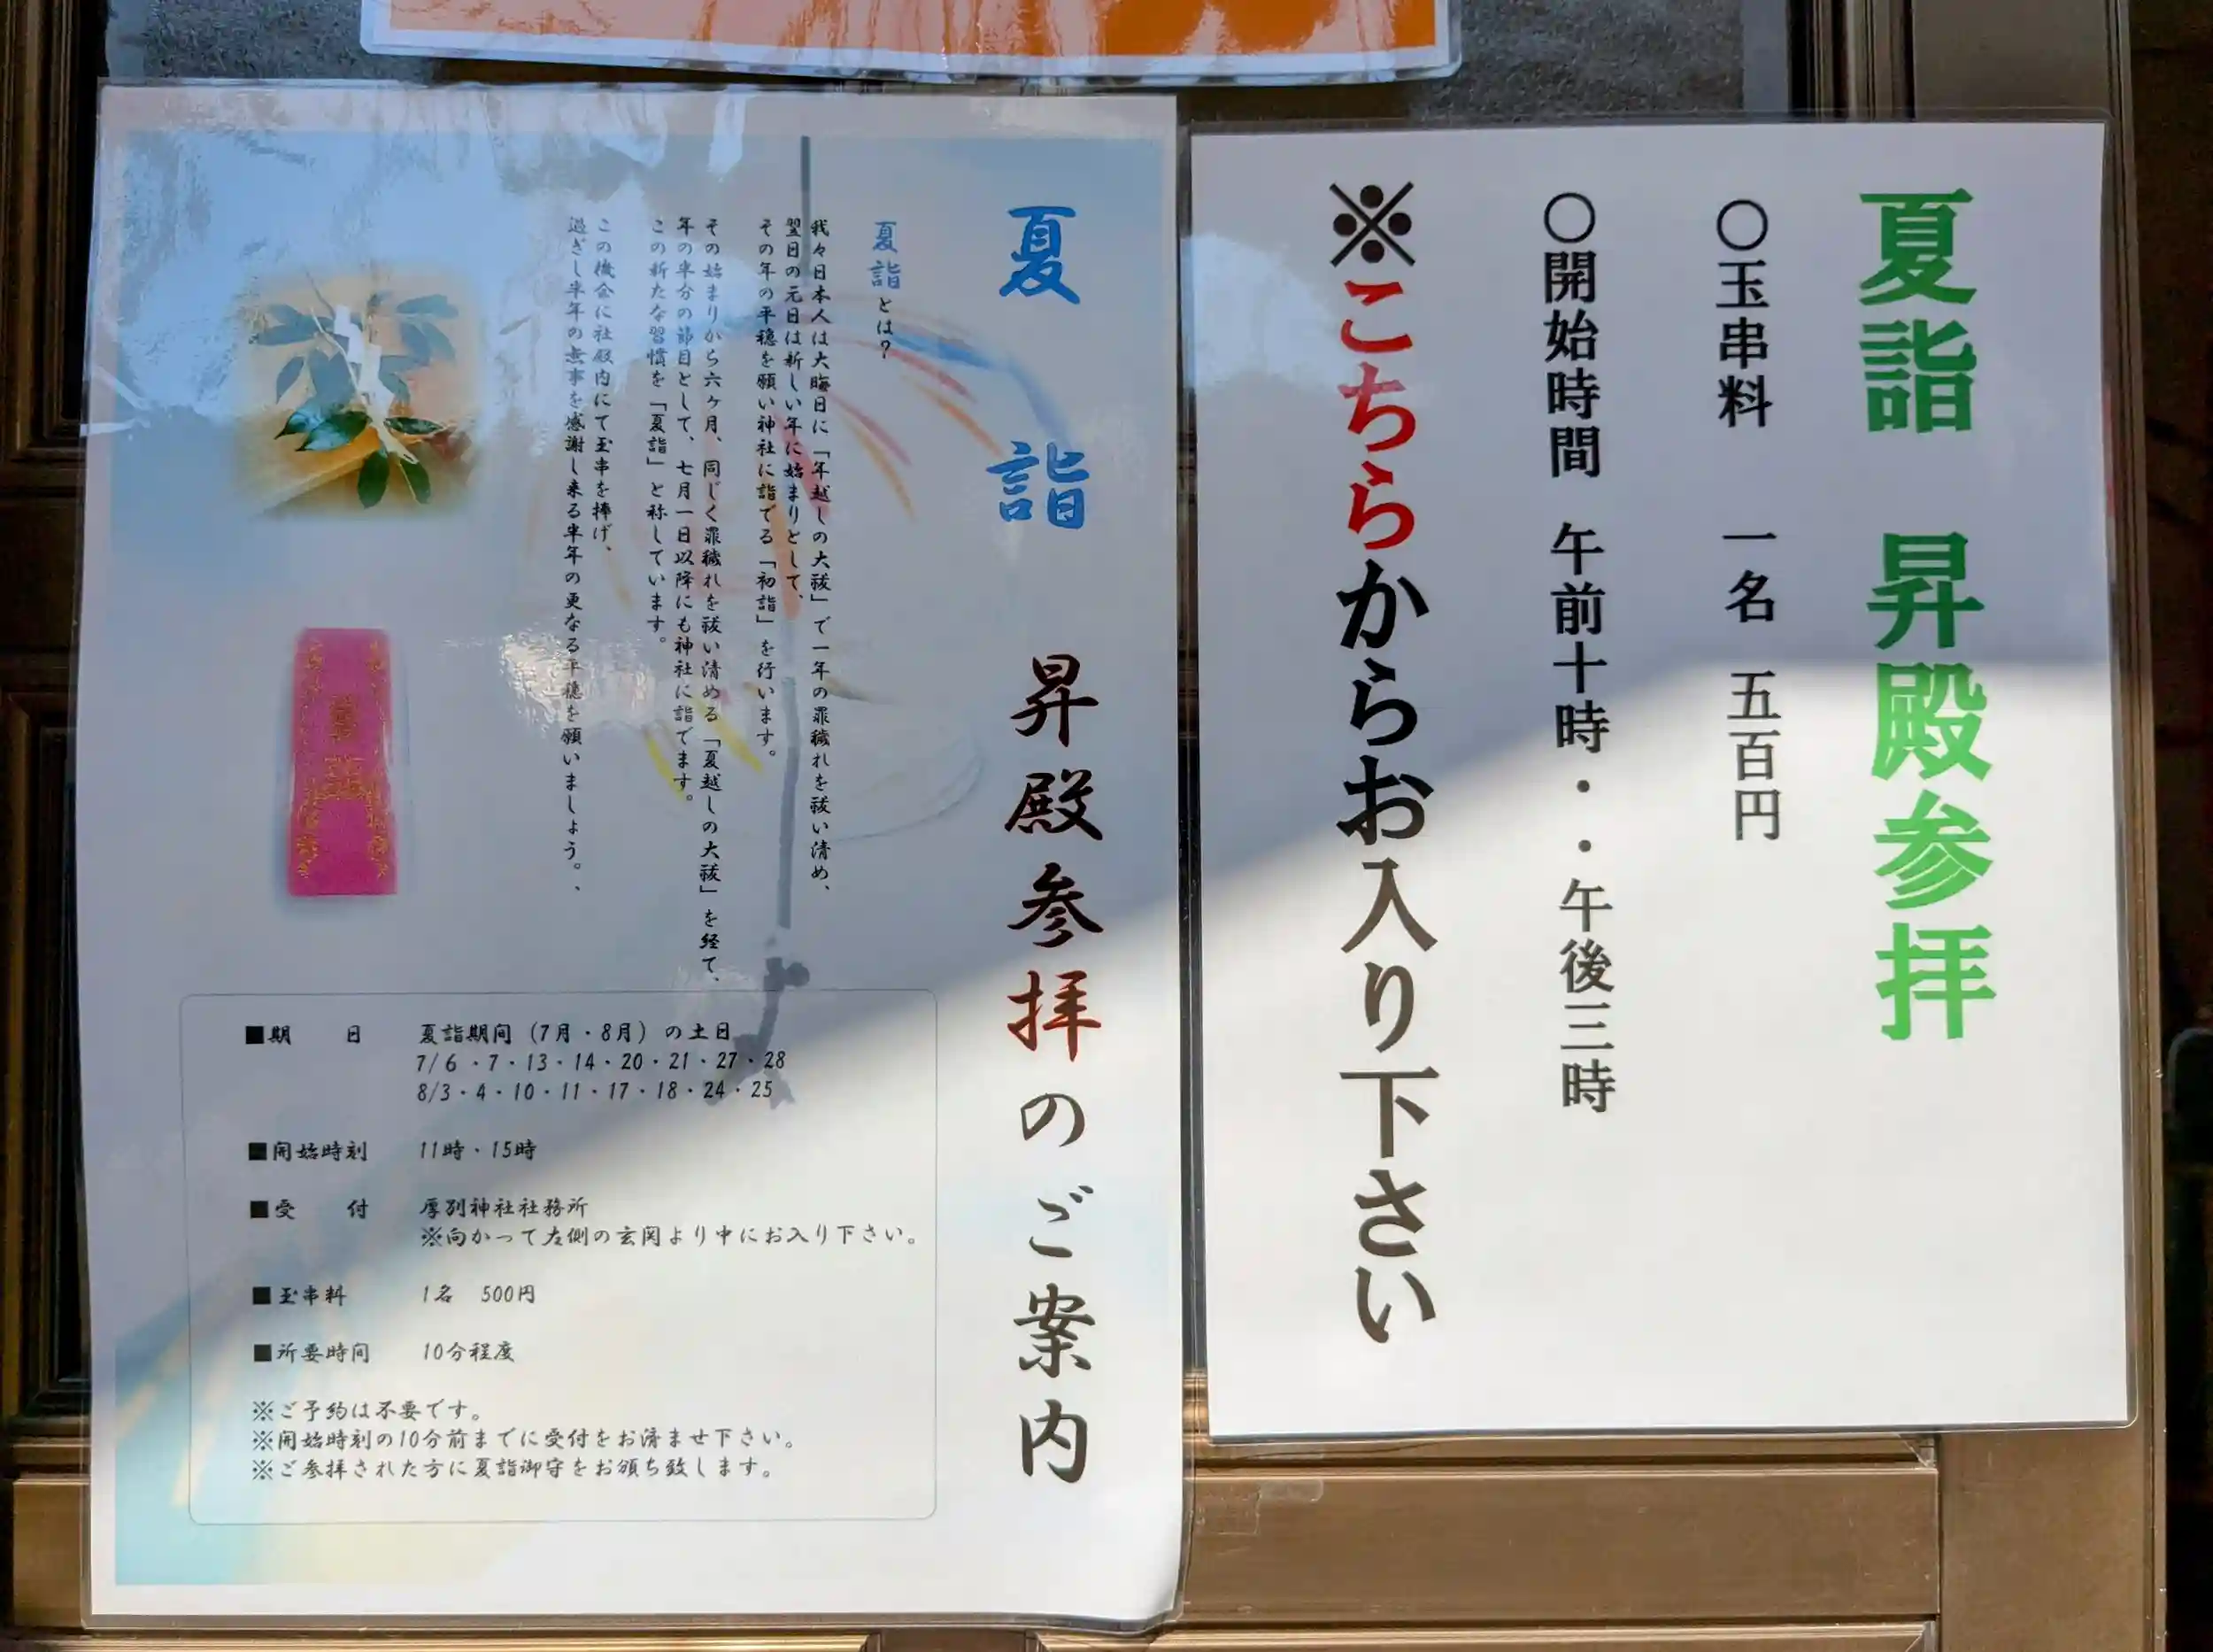 夏詣 昇殿参拝
○玉串料 一名 五百円
○開始時間 午前十時・・午後三時
※こちらからお入り下さい
夏詣 昇殿参拝のご案内
夏詣とは?
我々日本人は大晦日に「年越しの大祓」で一年の罪穢れを祓い清め、
翌日の元日は新しい年に始まりとして、
その年の平穏を願い神社に詣でる「初詣」を行います。
その始まりから六ヶ月、同じく罪穢れを祓い清める「夏越しの大祓」を経て、
年の半分の節目として、七月一日以降にも神社に詣でます。
この新たな習慣を「夏詣」と称しています。
この機会に社殿内にて玉串を捧げ、
過ぎし半年の無事を感謝し来る半年の更なる平穏を願いましょう。、
■期 日 夏詣期间(7月・8月)の土日
7/6・7・13・14・20・21・27・28
8/3・4・10・11・17・18・24・25
■開始時刻 11時・15時
■受 付 厚別神社社務所
※向かって左側の玄関より中にお入り下さい。
■玉串料 1名 500円
■所要時间 10分程度
※ご予約は不要です。
※開始時刻の10分前までに受付をお済ませ下さい。
※ご参拝された方に夏詣御守をお頒ち致します。